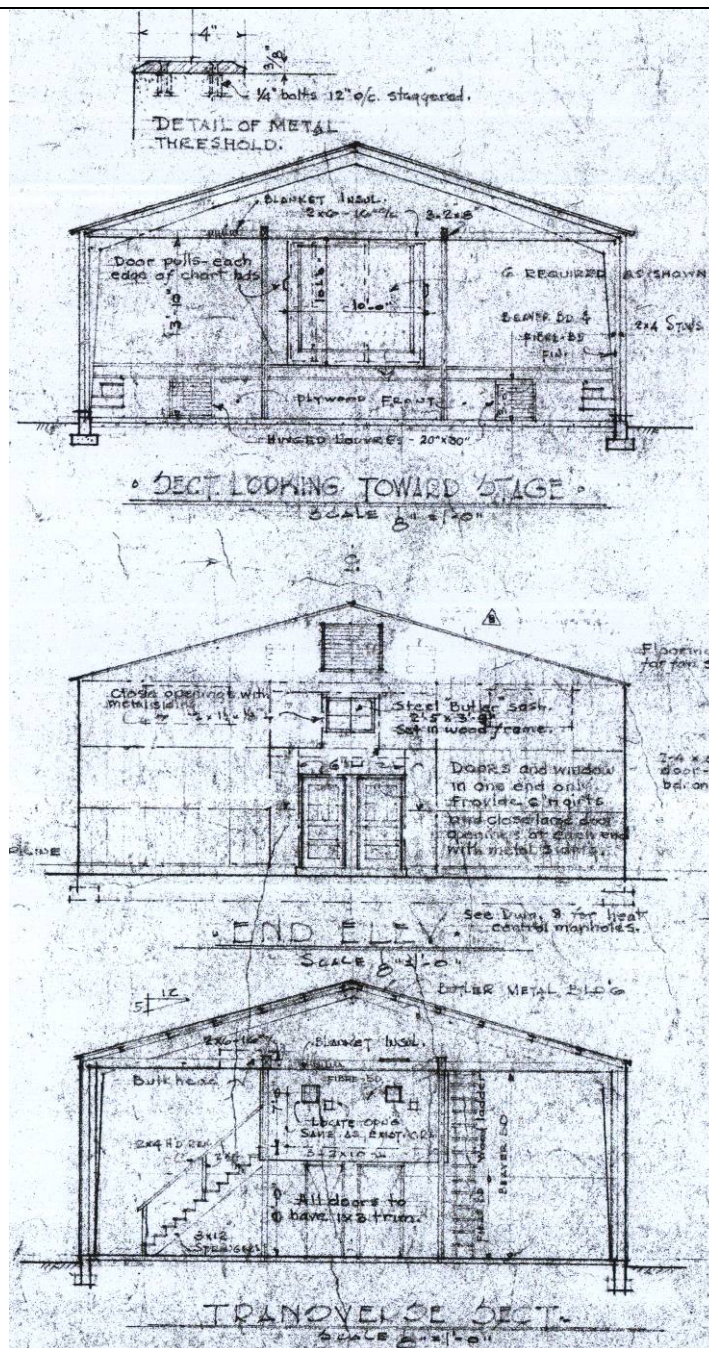 4"
3/8
1/4" bolts 12" o/c. staggered.
DETAIL OF METAL
THRESHOLD.
BLANKET INSUL.
2x6-16"o/c
3-2x8"
Door pulls-each
edge of chart bds
13'-10"
10'-6"
10'-0"
6 REQUIRED AS SHOWN
BEAVER BD &
FIBRE-BD
FIN.
2x4 STUDS
PLYWOOD FRONT.
HINGED LOUVRES - 20"x30"
SECT. LOOKING TOWARD STAGE
SCALE 1/8" = 1'-0"
8
Flooring
for fan
Close openings with
metal siding
Steel "Butler" sash.
Set in wood frame.
DOORS and window
in one end only
Provide 6" girts
and close large door
openings at each end
with metal
END ELEV.
SCALE 1/8" = 1'-0"
See Dwn. 8 for heat
control manholes.
12
5
BUTLER METAL BLD'G
2x6-16"
BLANKET INSUL.
Bulkhead
FIBRE-BD
LOCATE OP'NG
SAME AS EXIST.
3-2x10
Wood ladder
FIBRE BD
BEAVER BD
All doors to
have 1x3 trim.
3x12"
STRINGERS
TRANSVERSE SECT.
SCALE 1/8" = 1'-0"